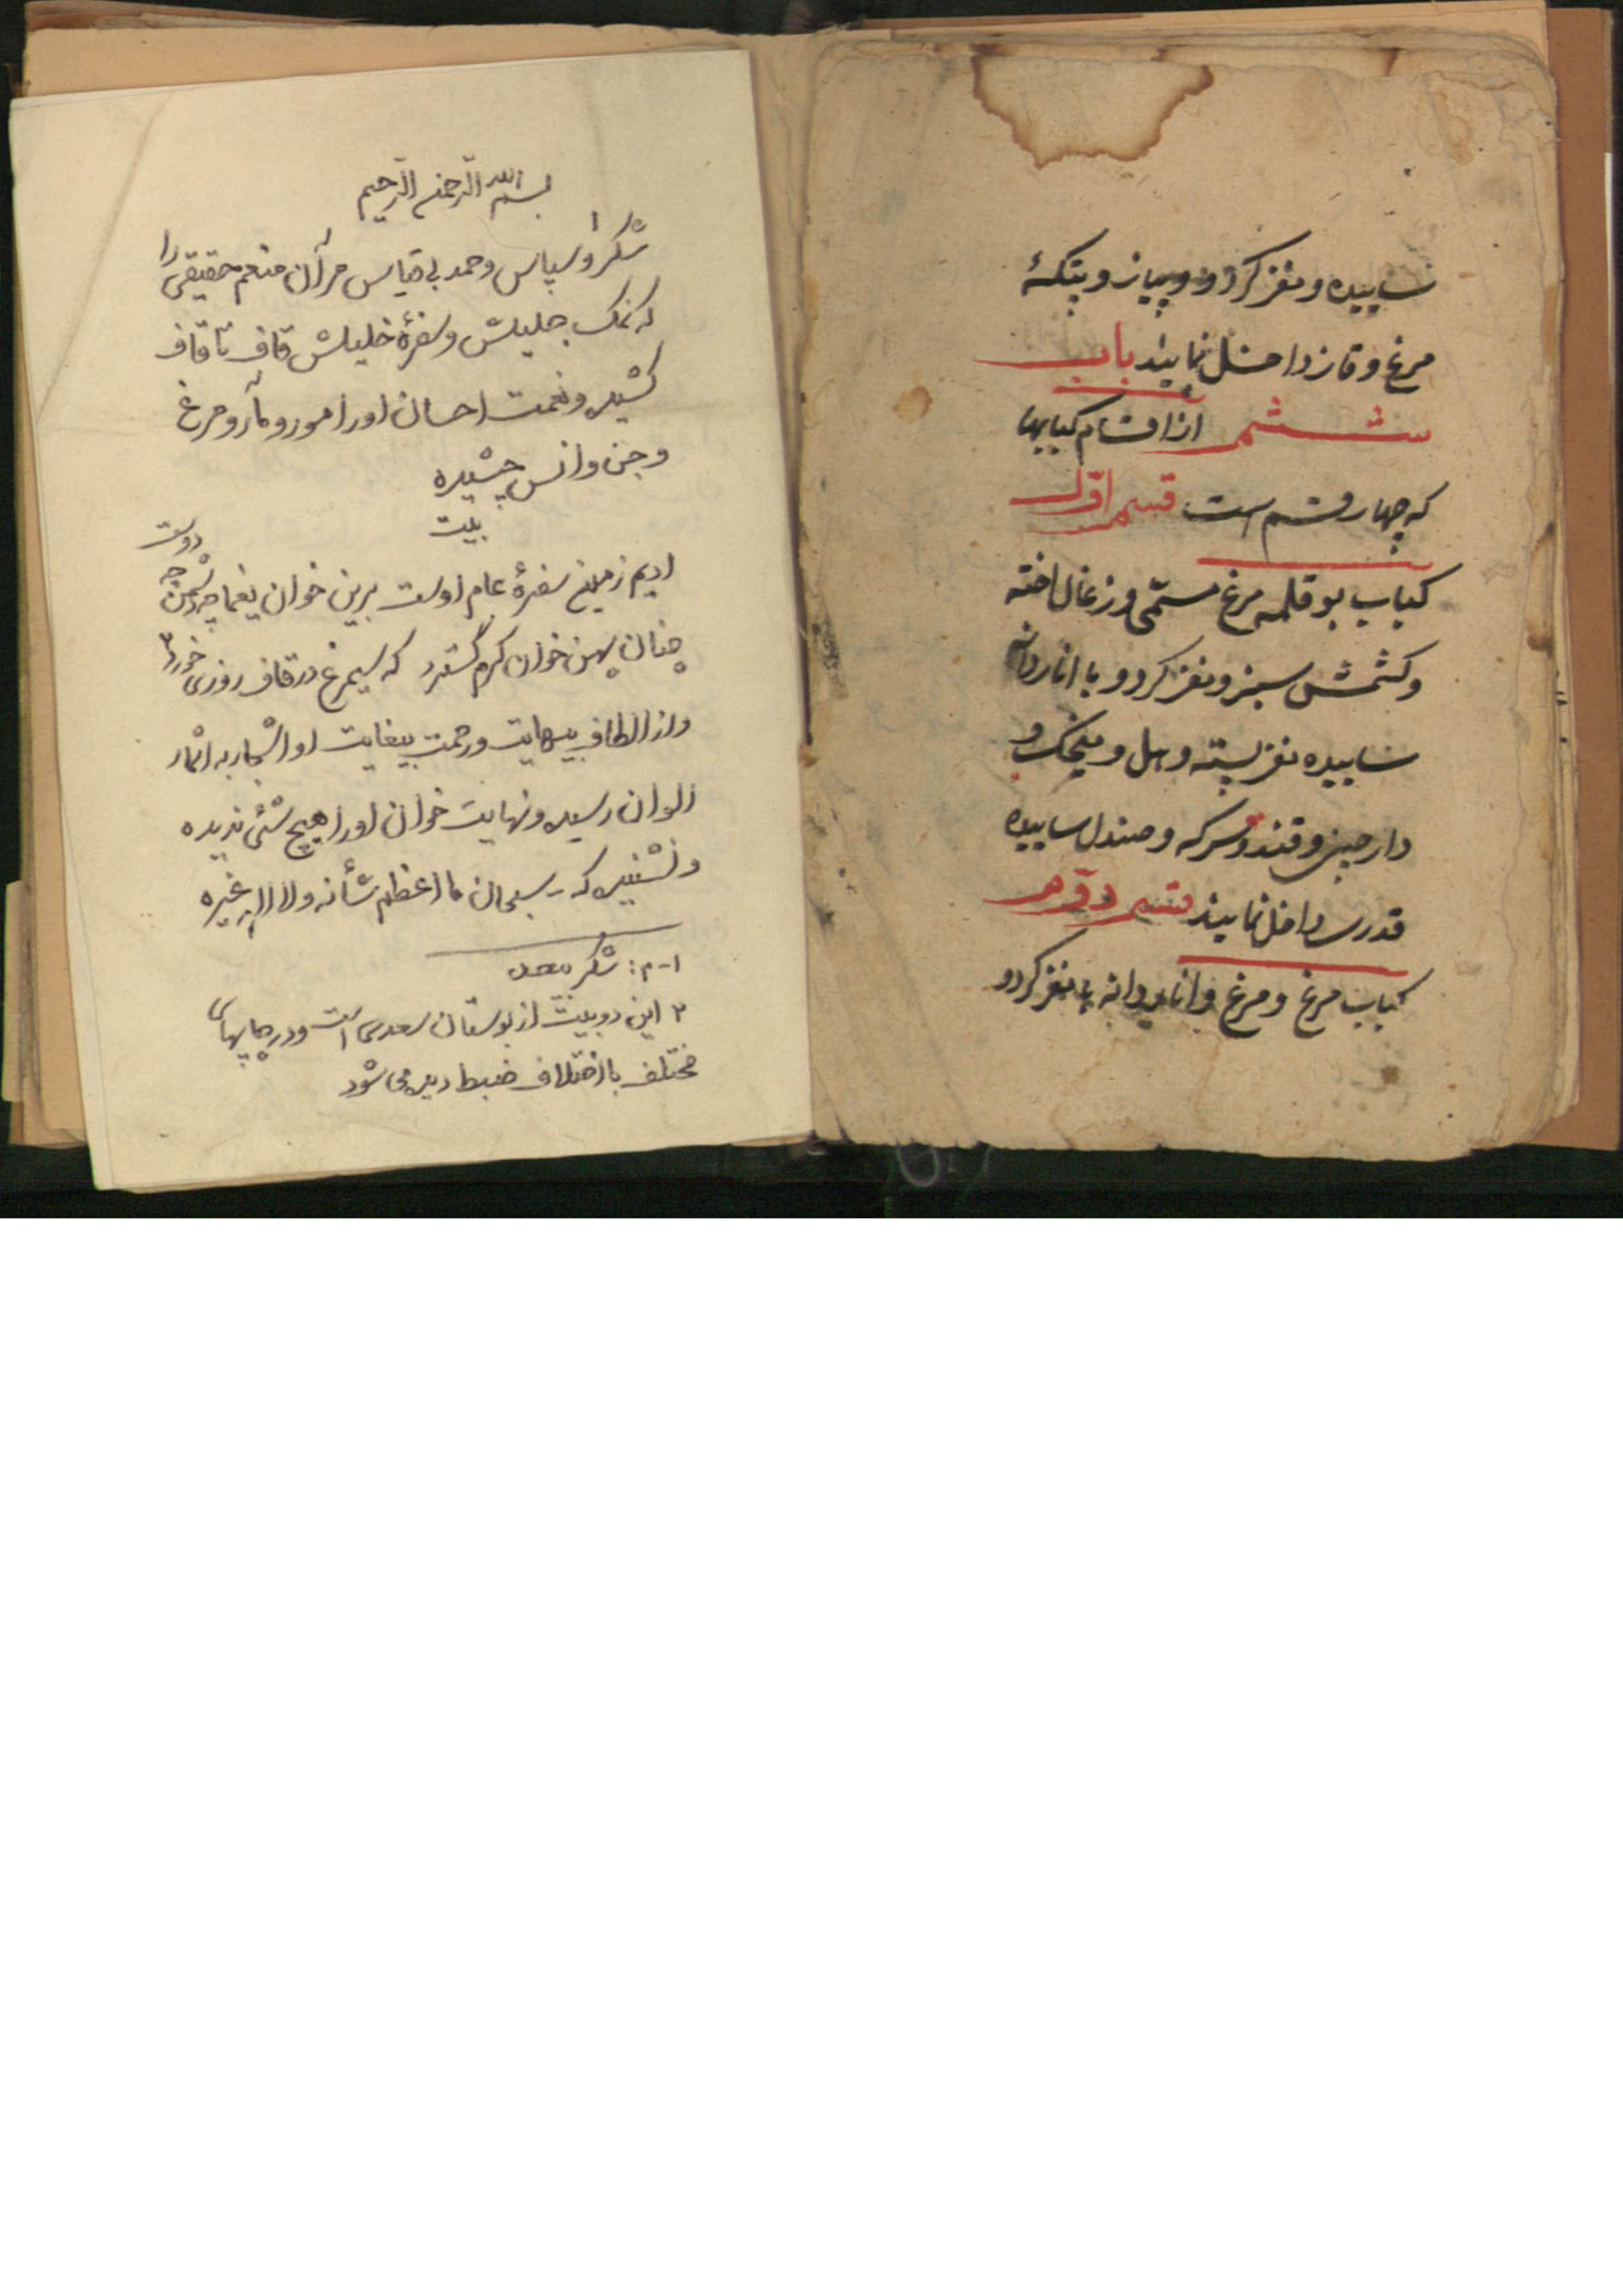 ساییده و مغز کردو و پیاز و پتکهٔ
مرغ و قاز داخل نمایند باب
ششم از اقسام کبابها
که چهار قسم است قسم اوّل
کباب بوقلمه مرغ مسمّی و زغال اخته
و کشمش سبز و مغز کردو با اناردانه
ساییده مغز پسته و هل و میخک و
دارچینی و قند و سرکه و صندل ساییده
قدری داخل نمایند قسم دوّم
کباب مرغ و مرغ و اناردانه با مغز کردو
بسم الله الرّحمن الرّحیم
شکر۱ و سپاس و حمد بی قیاس مر آن منعم حقیقی را
که نمک جلیلش و سفرهٔ خلیلش قاف تا قاف
کشیده و نعمت احسان او را مور و مار و مرغ
و جن و انس چشیده
بیت
ادیم زمین سفرهٔ عام اوست برین خوان یغما چه دشمن چه دوست
چنان پهن خوان کرم گسترد که سیمرغ در قاف روزی خورد۲
و از الطاف بینهایت و رحمت بیغایت او اشجار به اثمار
الوان رسیده و نهایت خوان او را هیچ شئی ندیده
و نشنیده که سبحان ما اعظم شأنه ولا اله غیره
۱-م: شکر بیعد
۲ این دو بیت از بوستان سعدی است و در چاپهای
مختلف با اختلاف ضبط دیده می شود